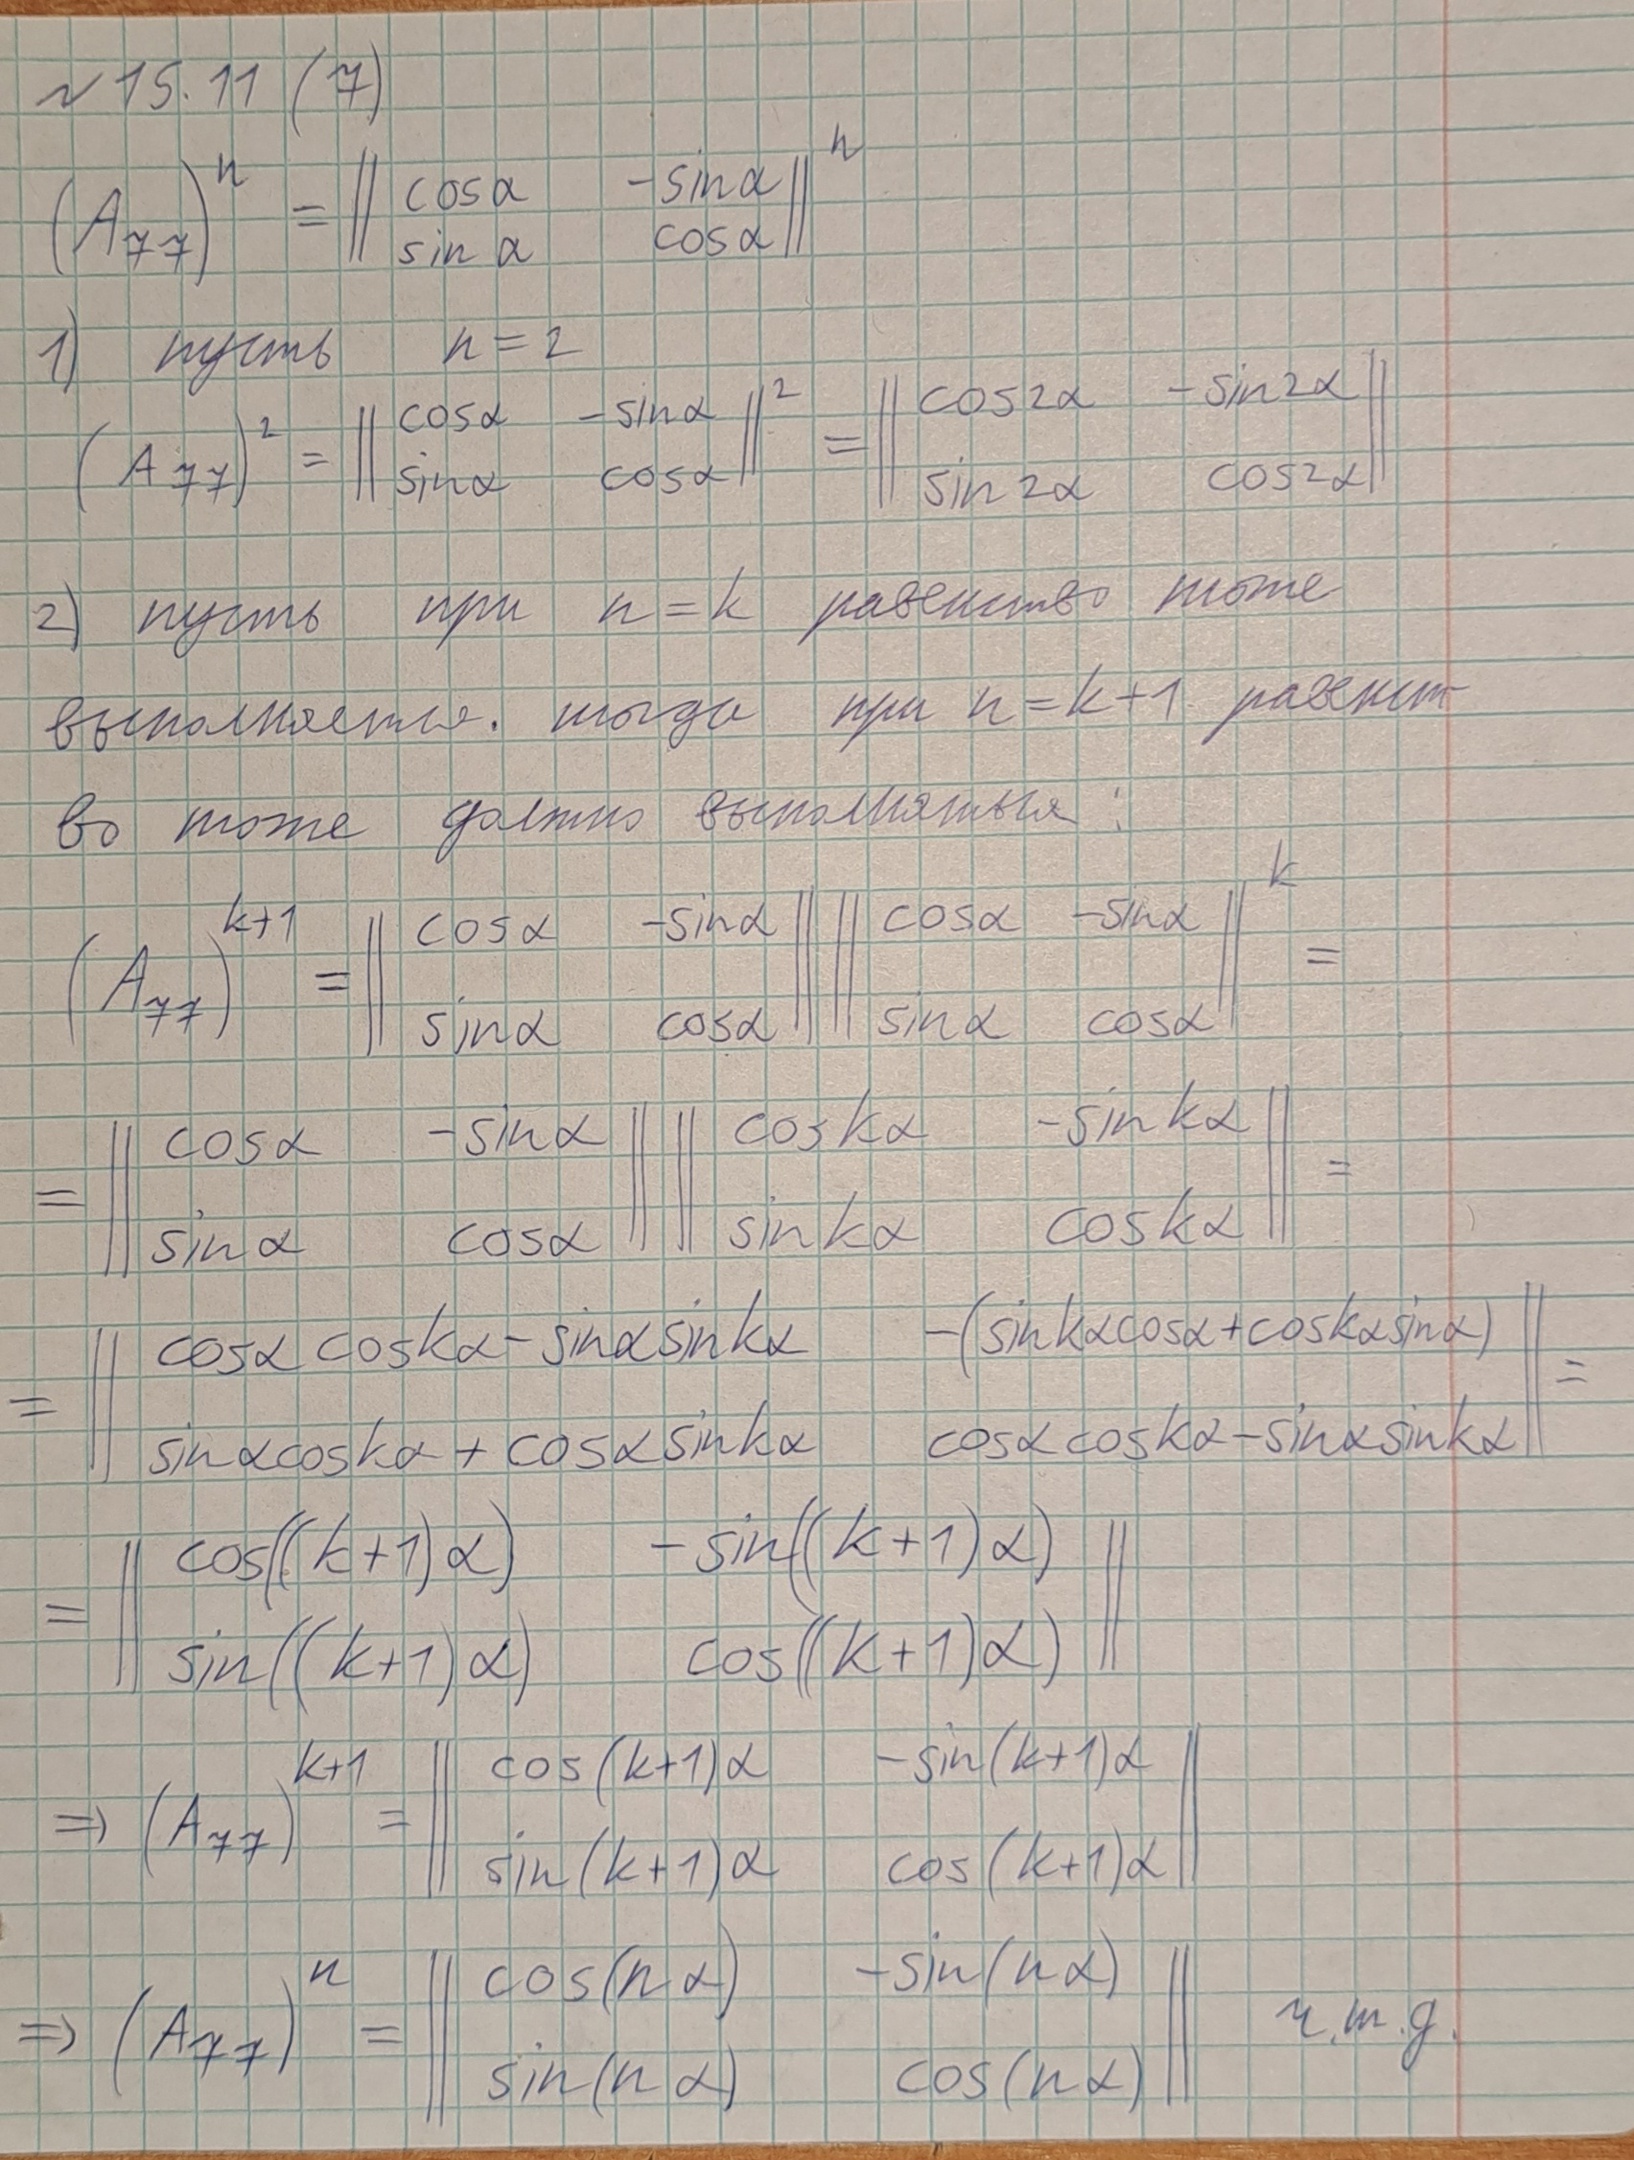 № 15.11 (7)
(A₇₇)ⁿ = || cosα -sinα ||ⁿ
sin α cosα
1) пусть n=2
(A₇₇)² = || cosα -sinα ||² = || cos2α -sin2α ||
sinα cosα sin2α cos2α
2) пусть при n=k равенство тоже
выполняется. тогда при n=k+1 равенст
во тоже должно выполняться:
(A₇₇)ᵏ⁺¹ = || cosα -sinα || || cosα -sinα ||ᵏ =
sinα cosα sinα cosα
= || cosα -sinα || || coskα -sinkα || =
sinα cosα sinkα coskα
= || cosα coskα - sinα sinkα -(sinkα cosα + coskα sinα) || =
sinα coskα + cosα sinkα cosα coskα - sinα sinkα
= || cos((k+1)α) -sin((k+1)α) ||
sin((k+1)α) cos((k+1)α)
=> (A₇₇)ᵏ⁺¹ = || cos(k+1)α -sin(k+1)α ||
sin(k+1)α cos(k+1)α
=> (A₇₇)ⁿ = || cos(nα) -sin(nα) || ч.т.д.
sin(nα) cos(nα)